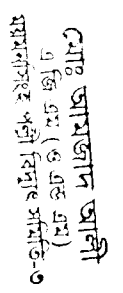 মোঃ আমজাদ আলী
এ জি এম (ও এন্ড এম)
ময়মনসিংহ পল্লী বিদ্যুৎ সমিতি-৩